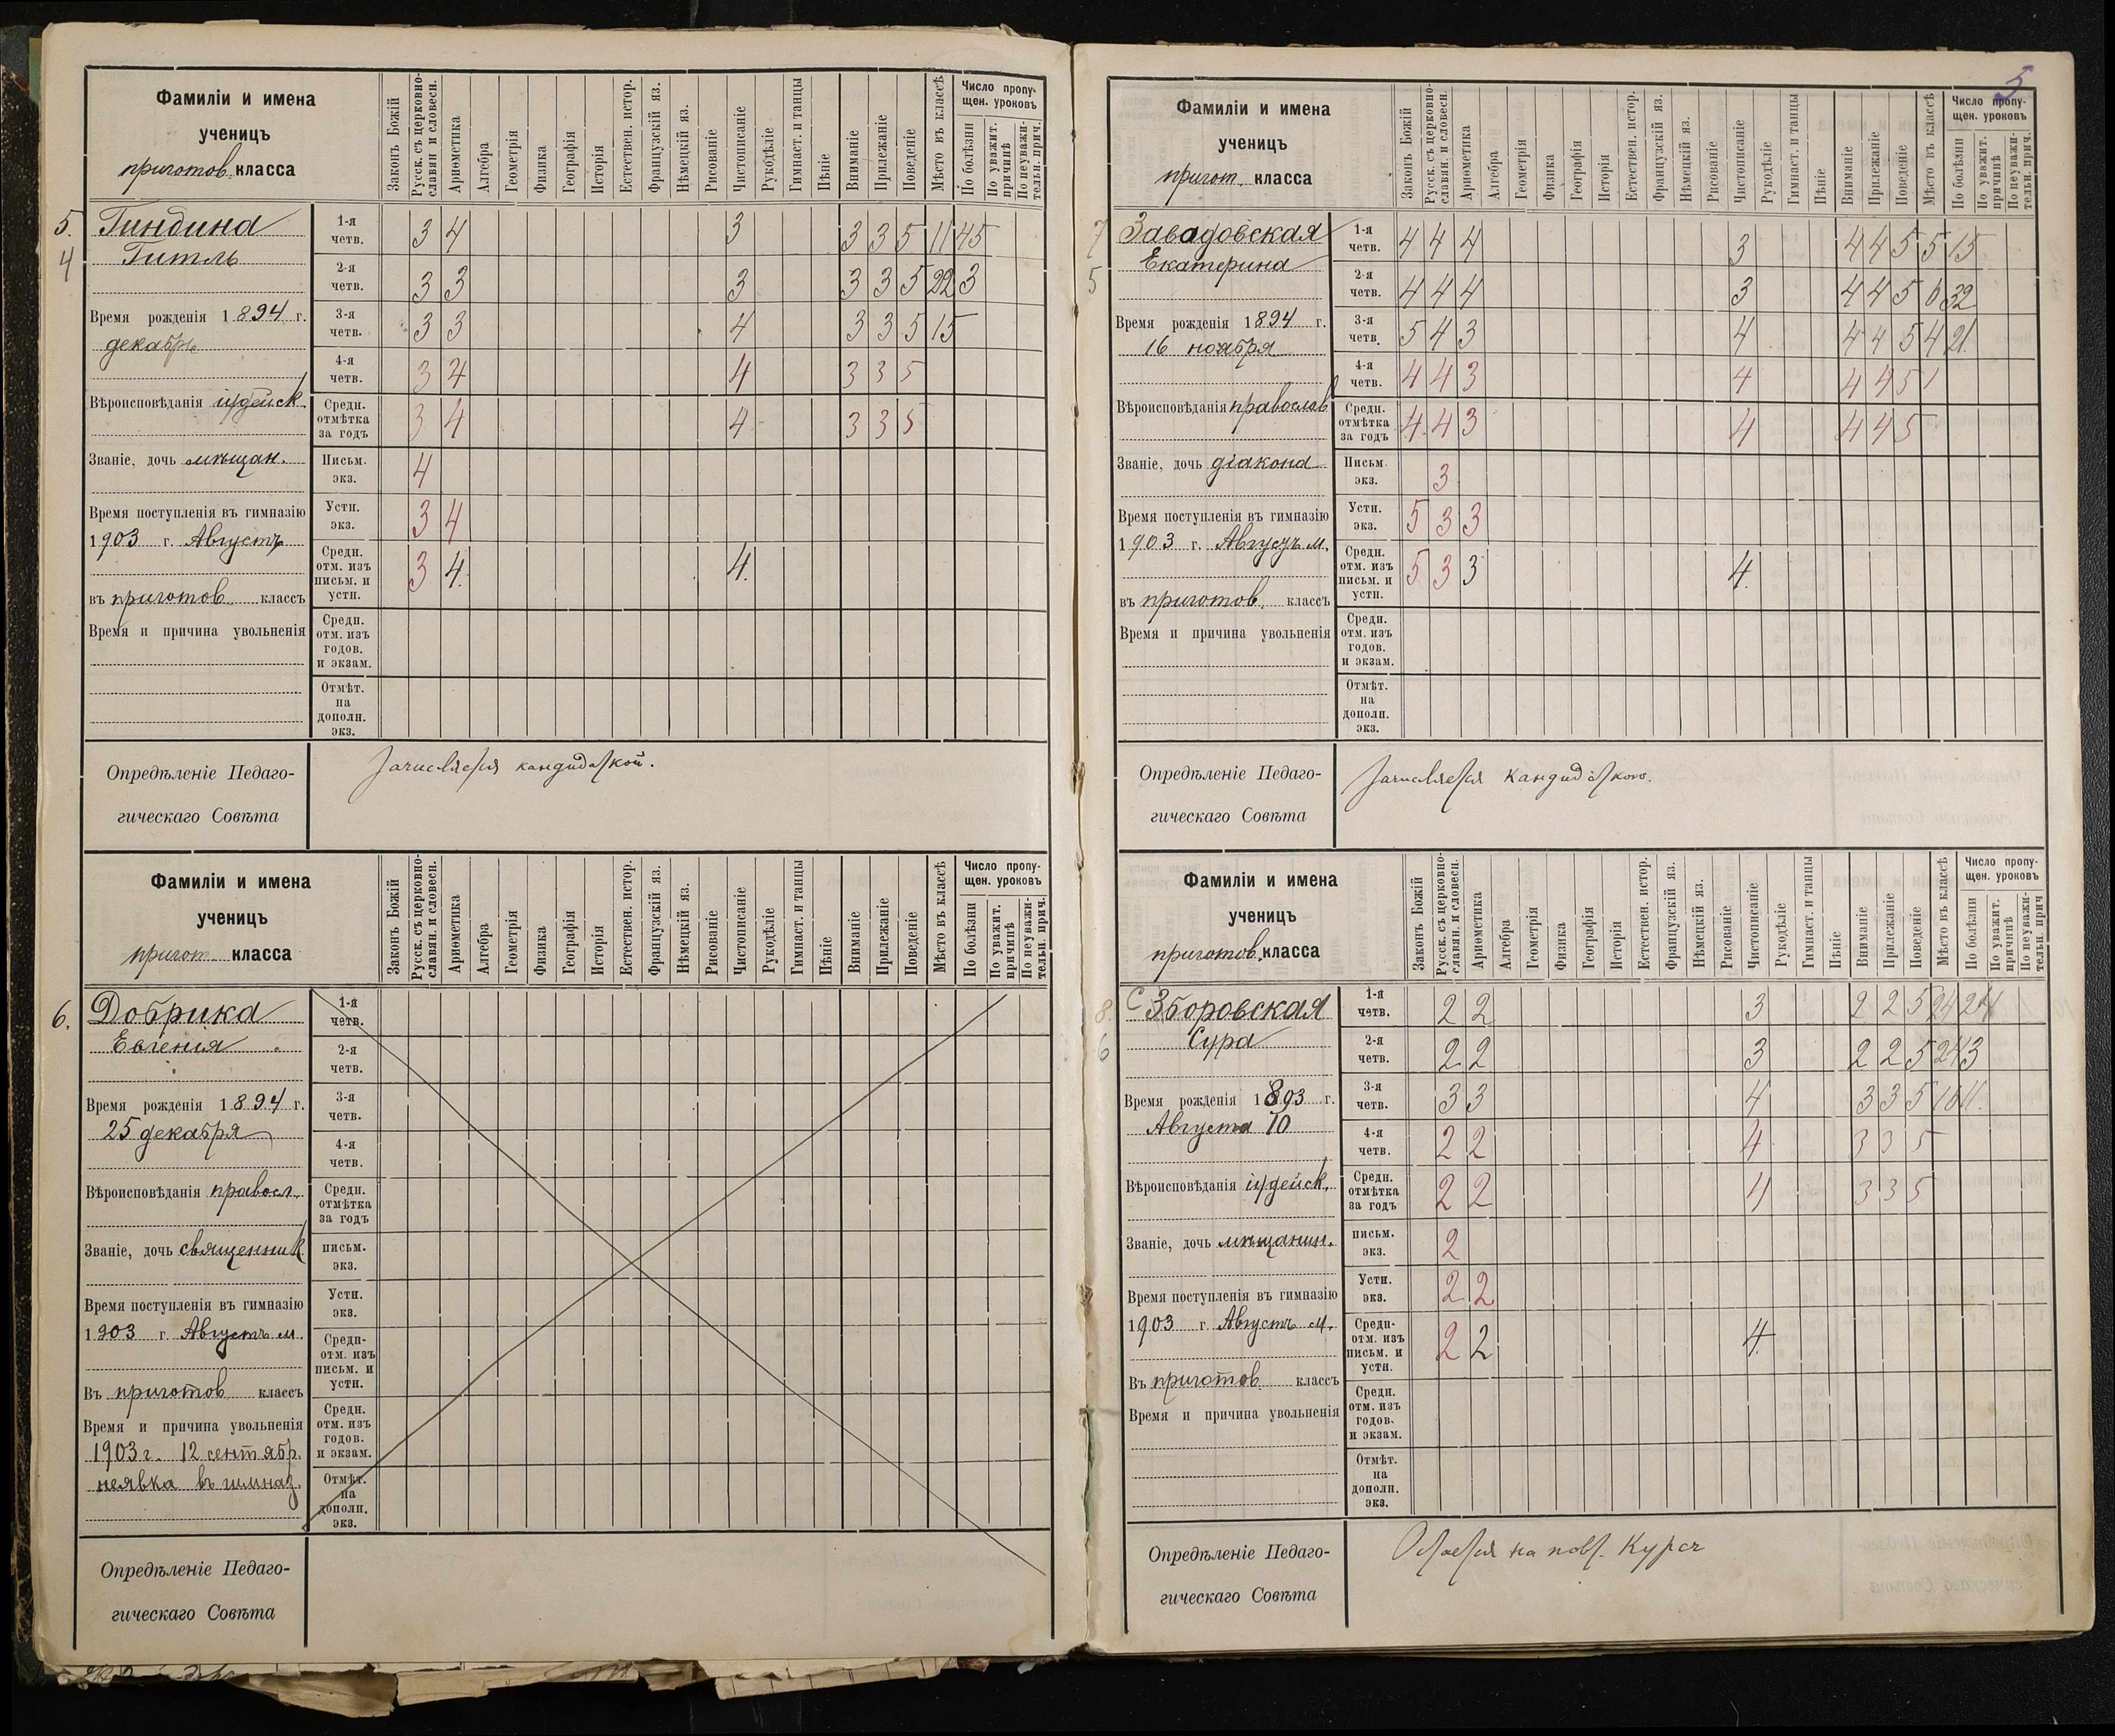 Фамиліи и имена
ученицъ
приготов. класса
Законъ Божій
Русск. съ церковно-
славян. и словесн.
Ариѳметика
Алгебра
Геометрія
Физика
Географія
Исторія
Естествен. истор.
Французскій яз.
Нѣмецкій яз.
Рисованіе
Чистописаніе
Рукодѣліе
Гимнаст. и танцы
Пѣніе
Вниманіе
Прилежаніе
Поведеніе
Мѣсто въ классѣ
Число пропу-
щен. уроковъ
По болѣзни
По уважит.
причинѣ
По неуважи-
тельн. прич.
5. Гиндина
4 Гитль
Время рожденія 1894 г.
декабрь
Вѣроисповѣданія іудейск.
Званіе, дочь мѣщан.
Время поступленія въ гимназію
1903 г. Августъ
въ приготов. классъ
Время и причина увольненія
1-я четв. 3 4 3 3 3 5 11 45
2-я четв. 3 3 3 3 3 5 22 3
3-я четв. 3 3 4 3 3 5 15
4-я четв. 3 4 4 3 3 5
Средн. отмѣтка за годъ 3 4 4 3 3 5
Письм. экз. 4
Устн. экз. 3 4
Средн. отм. изъ письм. и устн. 3 4. 4.
Средн. отм. изъ годов. и экзам.
Отмѣт. на дополн. экз.
Опредѣленіе Педаго-
гическаго Совѣта
Зачисляется кандидаткой.
Фамиліи и имена
ученицъ
пригот. класса
Законъ Божій
Русск. съ церковно-
славян. и словесн.
Ариѳметика
Алгебра
Геометрія
Физика
Географія
Исторія
Естествен. истор.
Французскій яз.
Нѣмецкій яз.
Рисованіе
Чистописаніе
Рукодѣліе
Гимнаст. и танцы
Пѣніе
Вниманіе
Прилежаніе
Поведеніе
Мѣсто въ классѣ
Число пропу-
щен. уроковъ
По болѣзни
По уважит.
причинѣ
По неуважи-
тельн. прич.
6. Добрика
Евгенія
Время рожденія 1894 г.
25 декабря
Вѣроисповѣданія правосл.
Званіе, дочь священник.
Время поступленія въ гимназію
1903 г. Августъ м.
Въ приготов классъ
Время и причина увольненія
1903 г. 12 сентябр.
неявка въ гимназ.
1-я четв.
2-я четв.
3-я четв.
4-я четв.
Средн. отмѣтка за годъ
письм. экз.
Устн. экз.
Средн- отм. изъ письм. и устн.
Средн. отм. изъ годов. и экзам.
Отмѣт. на дополн. экз.
Опредѣленіе Педаго-
гическаго Совѣта
5
Фамиліи и имена
ученицъ
пригот. класса
Законъ Божій
Русск. съ церковно-
славян. и словесн.
Ариѳметика
Алгебра
Геометрія
Физика
Географія
Исторія
Естествен. истор.
Французскій яз.
Нѣмецкій яз.
Рисованіе
Чистописаніе
Рукодѣліе
Гимнаст. и танцы
Пѣніе
Вниманіе
Прилежаніе
Поведеніе
Мѣсто въ классѣ
Число пропу-
щен. уроковъ
По болѣзни
По уважит.
причинѣ
По неуважи-
тельн. прич.
7 Завадовская
Екатерина
5
Время рожденія 1894 г.
16 ноября
Вѣроисповѣданія православ
Званіе, дочь діакона
Время поступленія въ гимназію
1903 г. Августъ м.
въ приготов. классъ
Время и причина увольненія
1-я четв. 4 4 4 3 4 4 5 5 15
2-я четв. 4 4 4 3 4 4 5 6 32
3-я четв. 5 4 3 4 4 4 5 4 21.
4-я четв. 4 4 3 4 4 4 5 1
Средн. отмѣтка за годъ 4 4 3 4 4 4 5
Письм. экз. 3
Устн. экз. 5 3 3
Средн. отм. изъ письм. и устн. 5 3 3 4.
Средн. отм. изъ годов. и экзам.
Отмѣт. на дополн. экз.
Опредѣленіе Педаго-
гическаго Совѣта
Зачисляется кандидаткою.
Фамиліи и имена
ученицъ
приготов. класса
Законъ Божій
Русск. съ церковно-
славян. и словесн.
Ариѳметика
Алгебра
Геометрія
Физика
Географія
Исторія
Естествен. истор.
Французскій яз.
Нѣмецкій яз.
Рисованіе
Чистописаніе
Рукодѣліе
Гимнаст. и танцы
Пѣніе
Вниманіе
Прилежаніе
Поведеніе
Мѣсто въ классѣ
Число пропу-
щен. уроковъ
По болѣзни
По уважит.
причинѣ
По неуважи-
тельн. прич
8. Зборовская
6 Сура
Время рожденія 1893 г.
Августа 10
Вѣроисповѣданія іудейск.
Званіе, дочь мѣщанин.
Время поступленія въ гимназію
1903 г. Августъ м.
Въ приготов. классъ
Время и причина увольненія
1-я четв. 2 2 3 2 2 5 24
2-я четв. 2 2 3 2 2 5 24 3
3-я четв. 3 3 4 3 3 5
4-я четв. 2 2 4 3 3 5
Средн. отмѣтка за годъ 2 2 4 3 3 5
письм. экз. 2
Устн. экз. 2 2
Средн- отм. изъ письм. и устн. 2 2 4.
Средн. отм. изъ годов. и экзам.
Отмѣт. на дополн. экз.
Опредѣленіе Педаго-
гическаго Совѣта
Остается на повт. курсъ